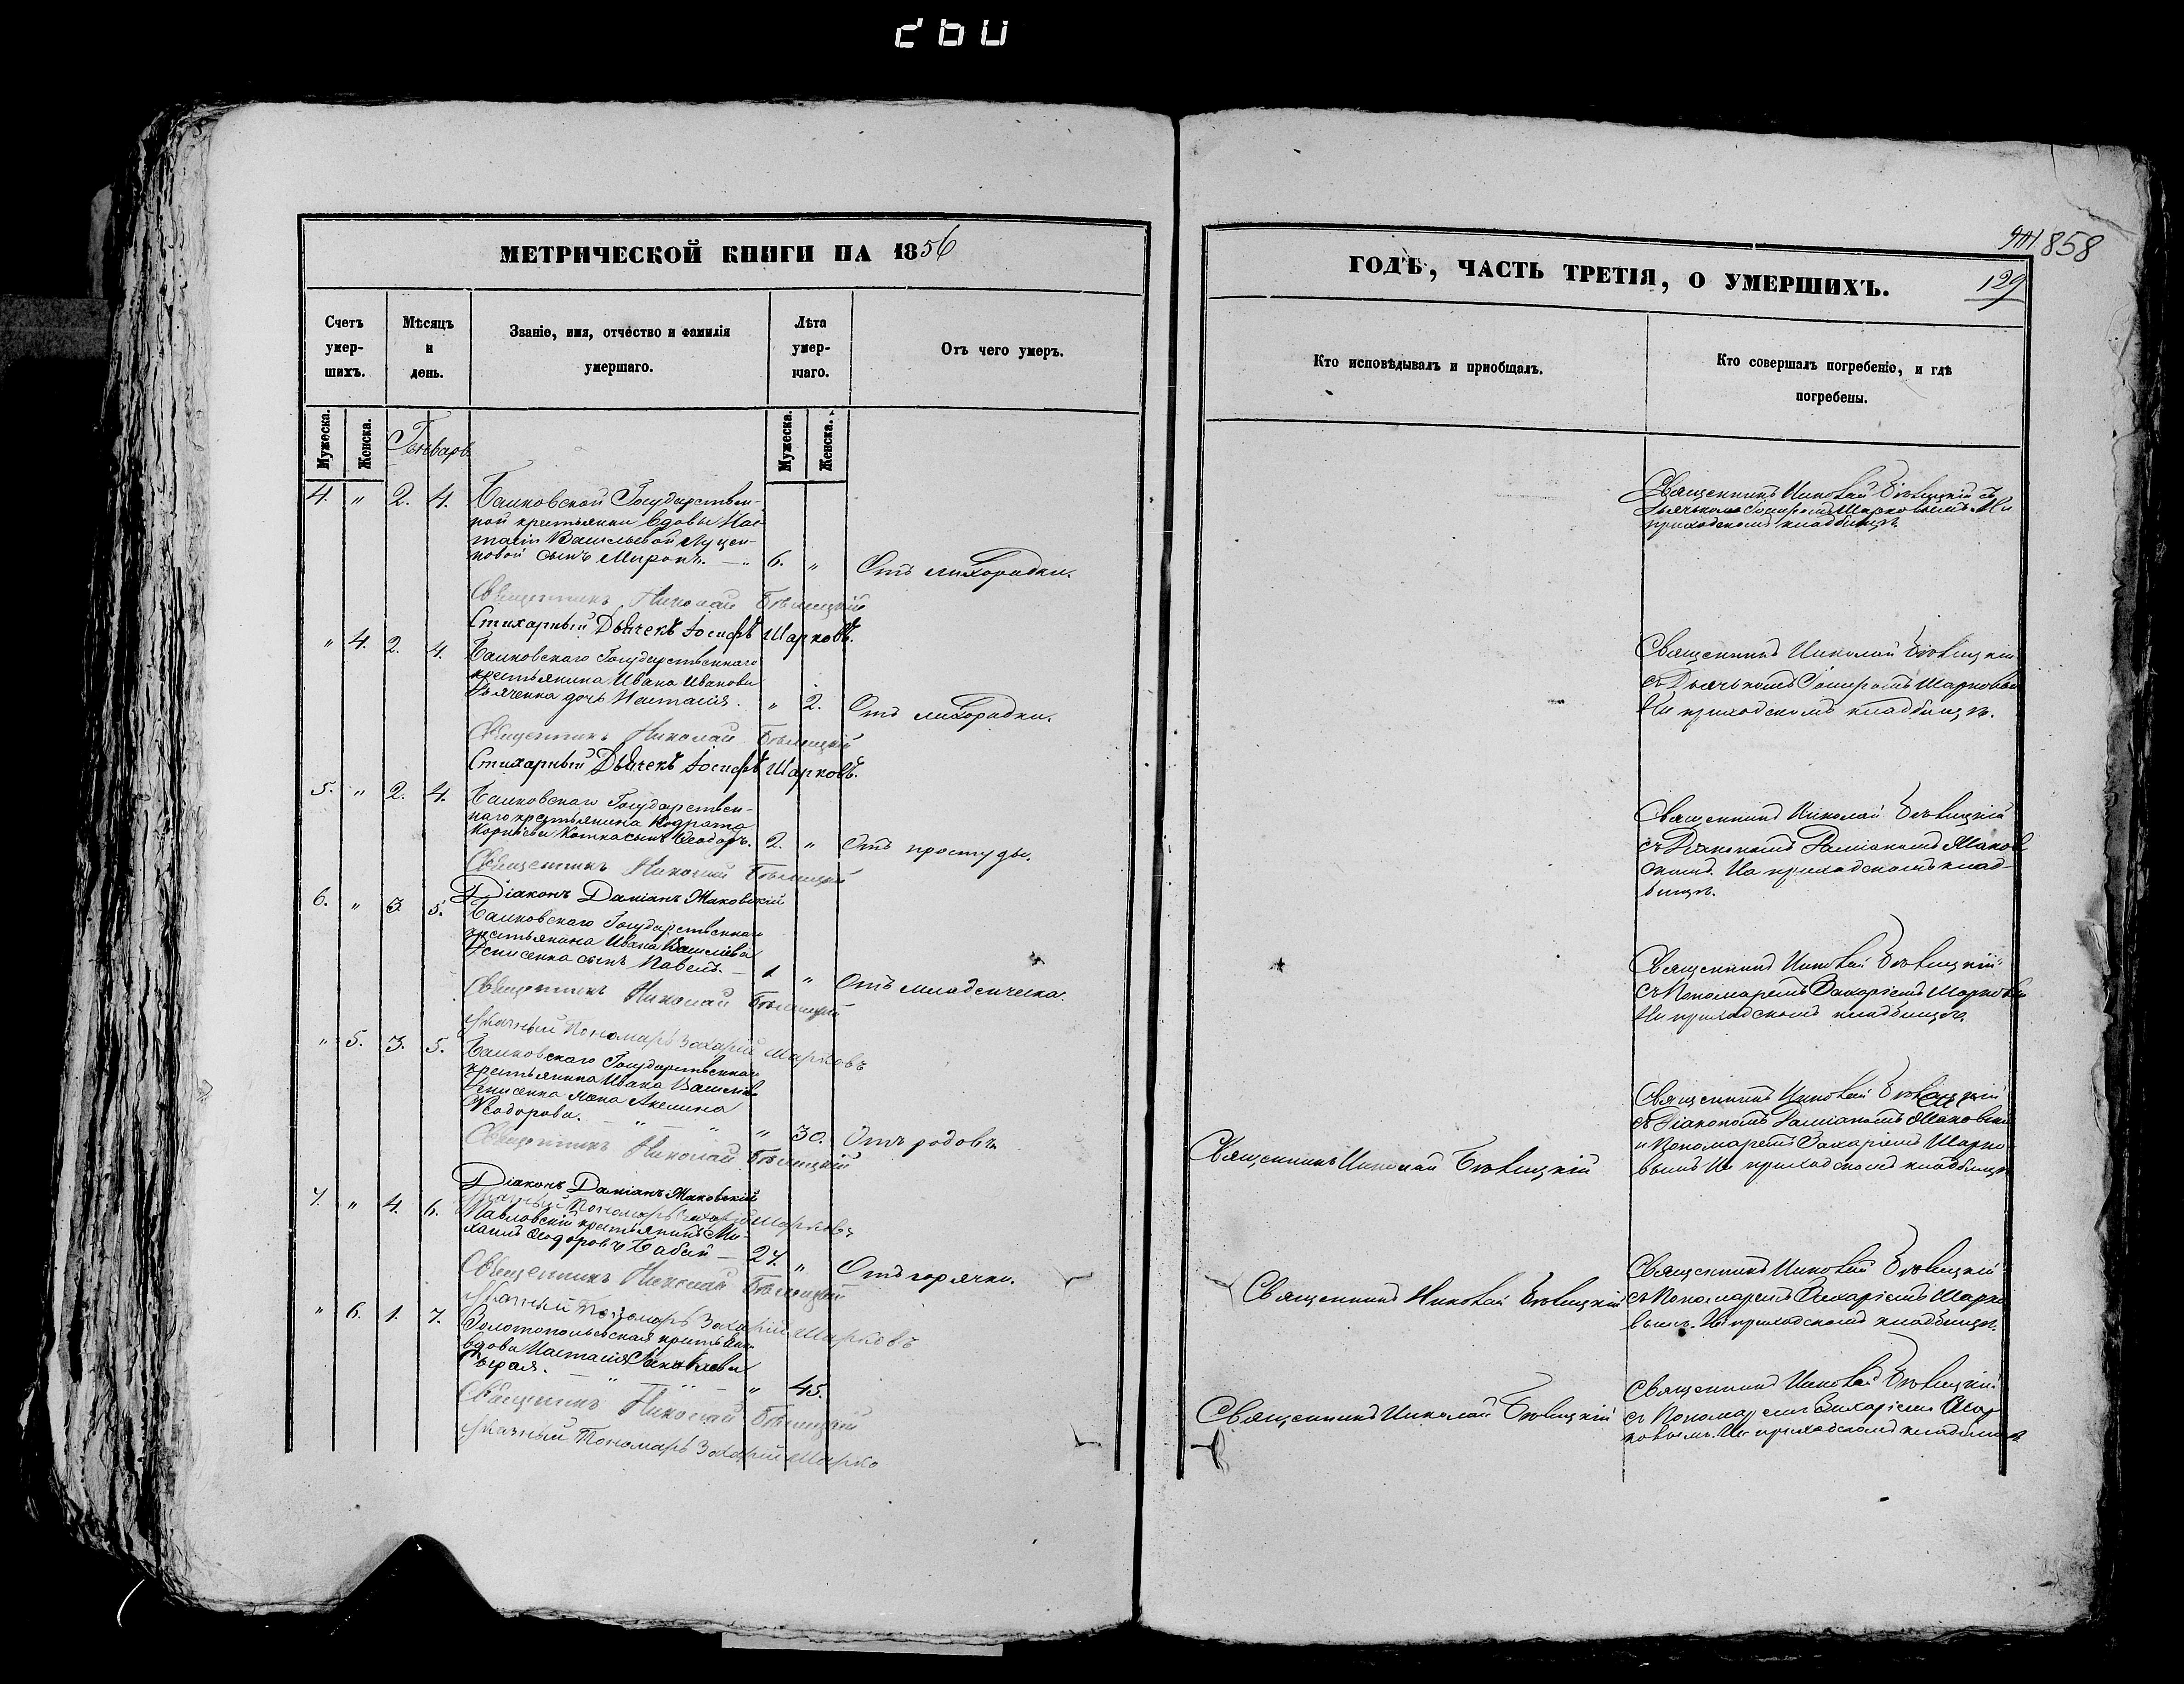 260
МЕТРИЧЕСКОЙ КНИГИ НА 1856
Счетъ умер-шихъ.
Мѣсяцъ и день.
Званіе, имя, отчество и фамилія умершаго.
Лѣта умер-шаго.
Отъ чего умеръ.
Мужеска.
Женска.
Генварь
Мужеска.
Женска.
4. " 2. 4. Государствен-
ной крестьянки вдовы Нас-
тасіи Васильевой Луцен-
ковой сынъ Миронъ. 6. " Отъ лихорадки.
Священникъ Николай Бѣлицкій
Стихарный Дьячекъ Іосифъ Шарковъ.
" 4. 2. 4. Государственнаго
крестьянина Ивана Иванова
Дяченка дочь Настасія. " 2. Отъ лихорадки.
Священникъ Николай Бѣлицкій
Стихарный Дьячекъ Іосифъ Шарковъ.
5. " 2. 4. Государствен-
наго крестьянина Кодрата
Корнѣева сынъ Ѳеодоръ. 2. " Отъ простуды.
Священникъ Николай Бѣлицкій
Діаконъ Даміанъ Маковскій
6. " 3. 5. Государственнаго
крестьянина Ивана Васильева
Денисенка сынъ Павелъ. 1 " Отъ младенческа.
Священникъ Николай Бѣлицкій
Пономарь Захарій Шарковъ
" 5. 3. 5. Государственнаго
крестьянина Ивана Васильева
Денисенка жена Акилина
Ѳеодорова. " 30. Отъ родовъ.
Священникъ Николай Бѣлицкій
Діаконъ Даміанъ Маковскій
Пономарь Захарій Шарковъ
7. " 4. 6. Павловскій крестьянинъ Ми-
хаилъ Ѳеодоровъ Бабай 27. " Отъ горячки.
Священникъ Николай Бѣлицкій
Пономарь Захарій Шарковъ
" 6. 1. 7. Золотопольская крестьянка
вдова Настасія Яковлева
" 45.
Священникъ Николай Бѣлицкій
Пономарь Захарій Шарко
858
129
ГОДЪ, ЧАСТЬ ТРЕТІЯ, О УМЕРШИХЪ.
Кто исповѣдывалъ и пріобщалъ.
Кто совершалъ погребеніе, и гдѣ погребены.
Священникъ Николай Бѣлицкій съ
Дьячкомъ Іосифомъ Шарковымъ. На
приходскомъ кладбищѣ.
Священникъ Николай Бѣлицкій
съ Дьячькомъ Іосифомъ Шарковым
На приходскомъ кладбищѣ.
Священникъ Николай Бѣлицкій
съ Діакономъ Даміаномъ Маков
скимъ. На приходскомъ клад-
бищѣ.
Священникъ Николай Бѣлицкій
съ Пономаремъ Захаріемъ Шарковым
На приходскомъ кладбищѣ.
Священникъ Николай Бѣлицкій
Священникъ Николай Бѣлицкій
съ Діакономъ Даміаномъ Маковским
и Пономаремъ Захаріемъ Шарко
вымъ На приходскомъ кладбищѣ
Священникъ Николай Бѣлицкій
Священникъ Николай Бѣлицкій
съ Пономаремъ Захаріемъ Шарко
вымъ. На приходскомъ кладбищѣ.
Священникъ Николай Бѣлицкій
Священникъ Николай Бѣлицкій
съ Пономаремъ Захаріемъ Шар
ковымъ. На приходскомъ кладбищѣ